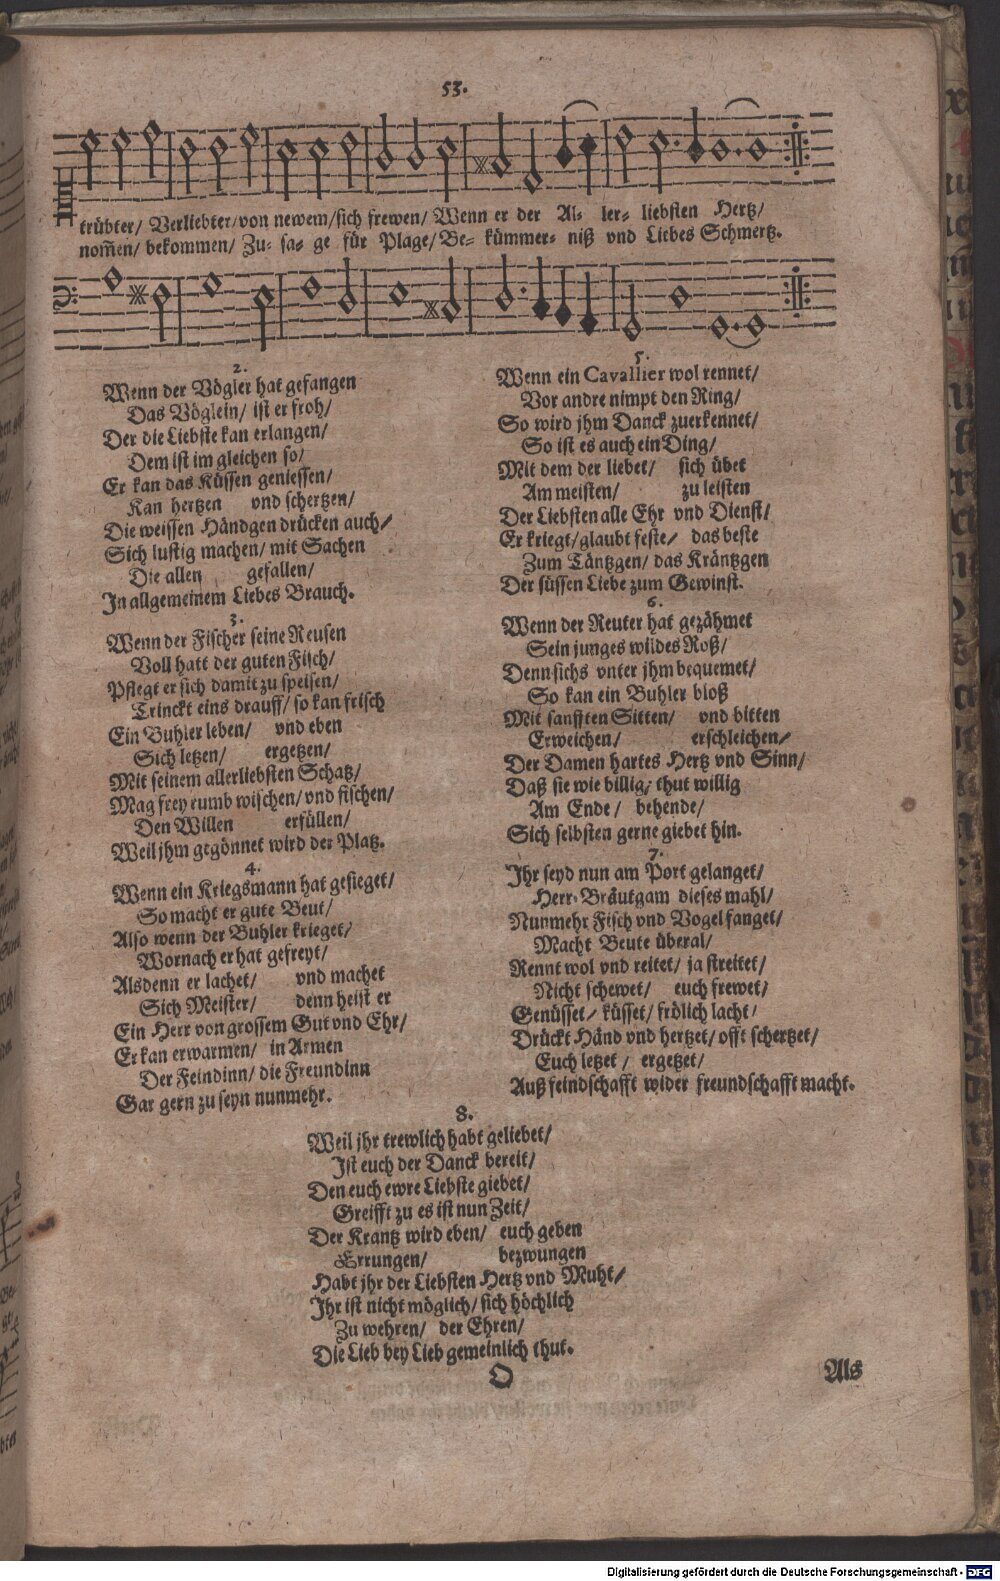 53.
trübter/ Verliebter/ von newem/ sich frewen/ Wenn er der Al- ler- liebsten Hertz/
nom̃en/ bekommen/ Zu- sa- ge für Plage/ Be- kümmer- niß vnd Liebes Schmertz.
2.
Wenn der Vögler hat gefangen
Das Vöglein/ ist er froh/
Der die Liebste kan erlangen/
Dem ist im gleichen so/
Er kan das Küssen geniessen/
Kan hertzen vnd schertzen/
Die weissen Händgen drücken auch/
Sich lustig machen/ mit Sachen
Die allen gefallen/
In allgemeinem Liebes Brauch.
3.
Wenn der Fischer seine Reusen
Voll hatt der guten Fisch/
Pflegt er sich damit zu speisen/
Trinckt eins drauff/ so kan frisch
Ein Buhler leben/ vnd eben
Sich letzen/ ergetzen/
Mit seinem allerliebsten Schatz/
Mag frey rumb wischen/ vnd fischen/
Den Willen erfüllen/
Weil jhm gegönnet wird der Platz.
4.
Wenn ein Kriegsmann hat gesieget/
So macht er gute Beut/
Also wenn der Buhler krieget/
Wornach er hat gefreyt/
Alsdenn er lachet/ vnd machet
Sich Meister/ denn heist er
Ein Herr von grossem Gut vnd Ehr/
Er kan erwarmen/ in Armen
Der Feindinn/ die Freundinn
Gar gern zu seyn nunmehr.
5.
Wenn ein Cavallier wol rennet/
Vor andre nimpt den Ring/
So wird jhm Danck zuerkennet/
So ist es auch ein Ding/
Mit dem der liebet/ sich übet
Am meisten/ zu leisten
Der Liebsten alle Ehr vnd Dienst/
Er kriegt/ glaubt feste/ das beste
Zum Täntzgen/ das Kräntzgen
Der süssen Liebe zum Gewinst.
6.
Wenn der Reuter hat gezähmet
Sein junges wildes Roß/
Denn sichs vnter jhm bequemet/
So kan ein Buhler bloß
Mit sanfften Sitten/ vnd bitten
Erweichen/ erschleichen/
Der Damen hartes Hertz vnd Sinn/
Daß sie wie billig/ thut willig
Am Ende/ behende/
Sich selbsten gerne giebet hin.
7.
Ihr seyd nun am Port gelanget/
Herr Bräutgam dieses mahl/
Nunmehr Fisch vnd Vogel fanget/
Macht Beute überal/
Rennt wol vnd reitet/ ja streitet/
Nicht schewet/ euch frewet/
Genüsset/ küsset/ frölich lacht/
Drückt Händ vnd hertzet/ offt schertzet/
Euch letzet/ ergetzet/
Auß feindschafft wider freundschafft macht.
8.
Weil jhr trewlich habt geliebet/
Ist euch der Danck bereit/
Den euch ewre Liebste giebet/
Greifft zu es ist nun Zeit/
Der Krantz wird eben/ euch geben
Errungen/ bezwungen
Habt jhr der Liebsten Hertz vnd Muht/
Ihr ist nicht möglich/ sich höchlich
Zu wehren/ der Ehren/
Die Lieb bey Lieb gemeinlich thut.
O Als
Digitalisierung gefördert durch die Deutsche Forschungsgemeinschaft - DFG